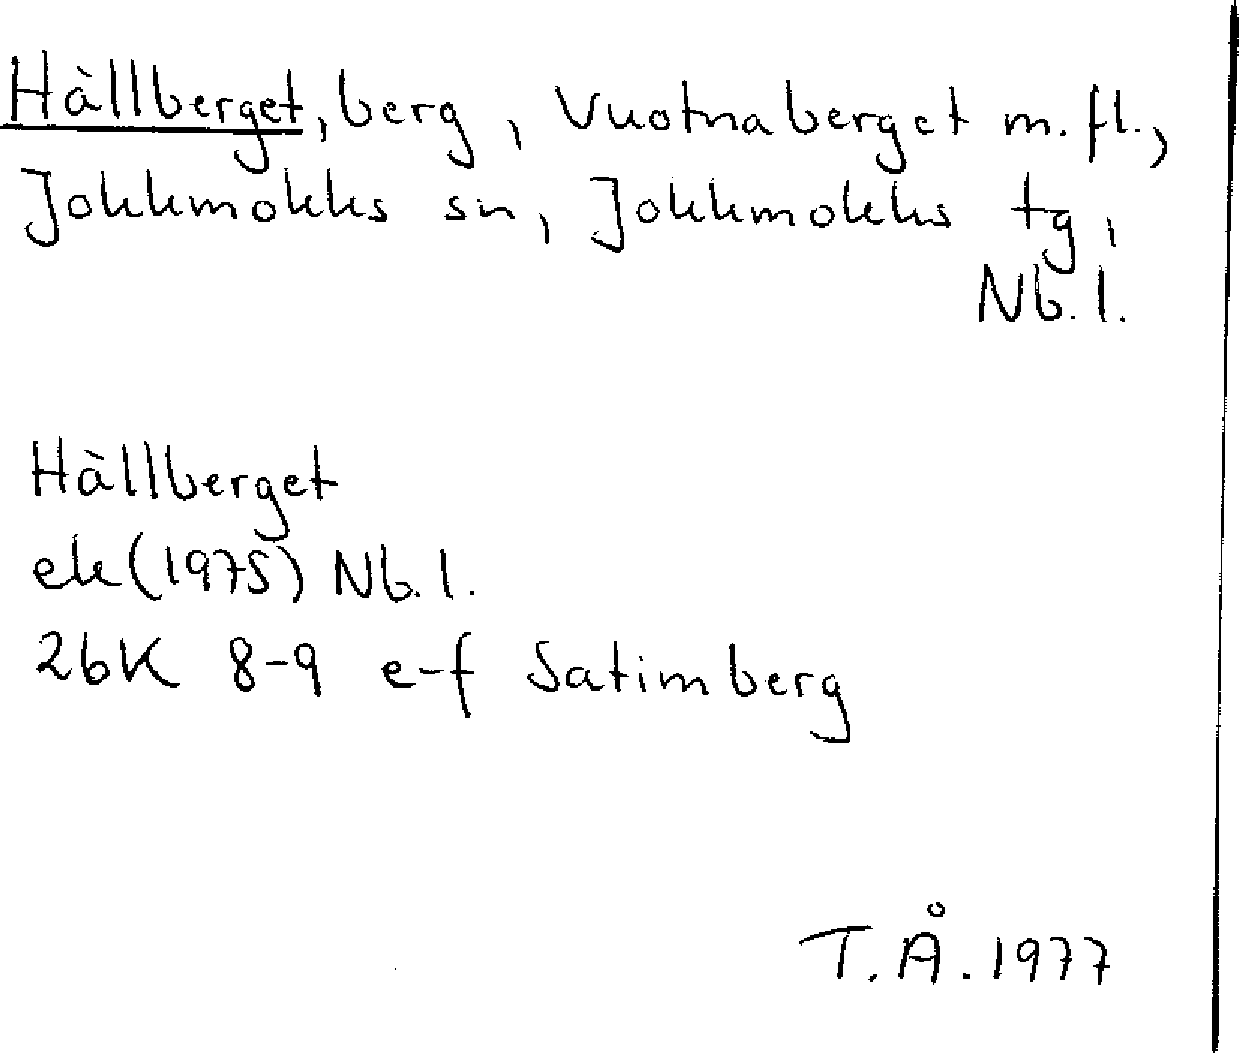 Hällberget, berg, Vuotnaberget m. fl.,
Jokkmokks sn, Jokkmokks tg,
Nb. l.
Hällberget
ek (1975) Nb. l.
26K 8-9 e-f Satimberg
T. Å. 1977